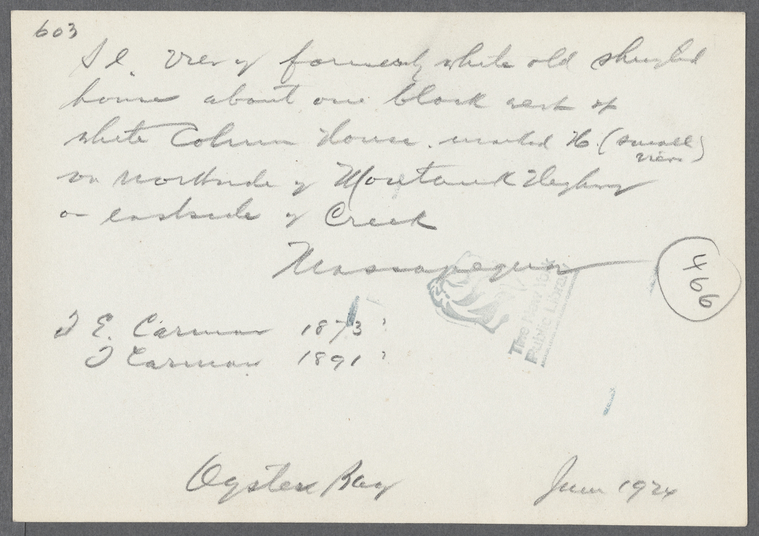 603
S E. View of formerly white old shingled
house about one block west of
white Column House. marked H. (small
view)
on northside of Montauk Highway
on eastside of Creek
Massapequa
466
The New York
Public Library
E. Carman 1873
Carman 1891
Oyster Bay June 1924